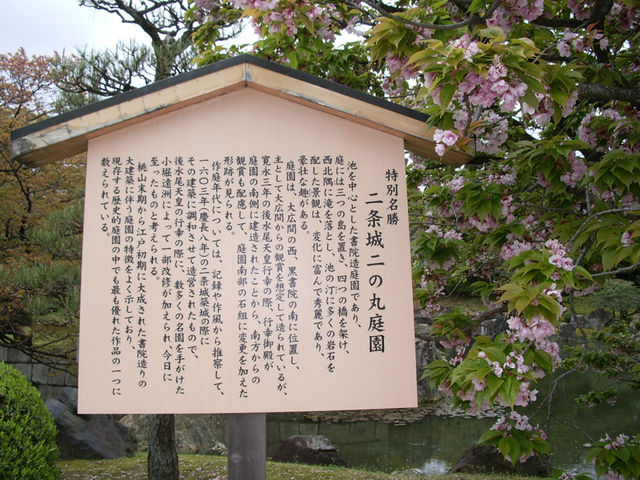 特別名勝
二条城 二の丸庭園
池を中心とした書院造庭園であり、
庭には三つの島を置き、四つの橋を架け、
西北隅に滝を落とし、池の汀に多くの岩石を
配した景観は、変化に富んで秀麗であり、
豪壮な趣がある。
庭園は、大広間の西、黒書院の南に位置し、
主として大広間からの観賞を想定して造られているが、
寛永三年の後水尾天皇行幸の際、行幸御殿が
庭園の南側に建造されたことから、南方からの
観賞も配慮して、庭園南部の石組に変更を加えた
形跡が見られる。
作庭年代については、記録や作風から推察して、
一六〇三年(慶長八年)の二条城築城の際に
その建築に調和させて造営されたもので、
後水尾天皇の行幸の際に、数多くの名園を手がけた
小堀遠州によって一部改修が加えられ、今日に
至ったものと考えられる。
桃山末期から江戸初期に大成された書院造りの
大建築に伴う庭園の特徴をよく示しており、
現存する歴史的庭園の中でも最も優れた作品の一つに
数えられている。